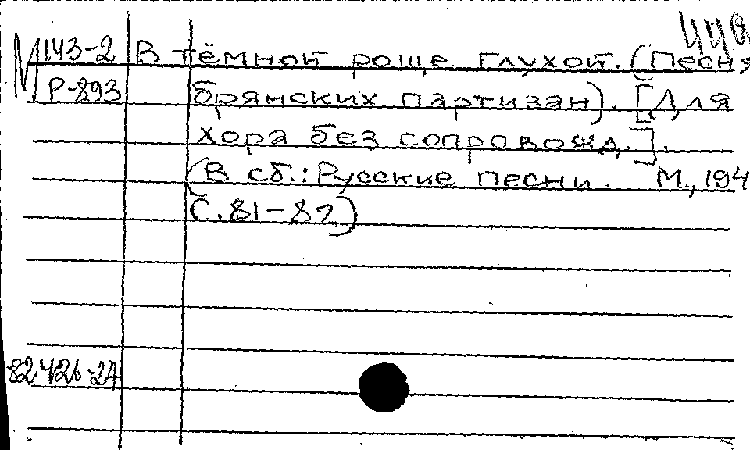 448
М 143-2 В тёмной роще глухой. (Песня
Р-893 брянских партизан). [Для
хора без сопровожд.].
(В сб.: Русские песни. М., 194
С. 81-82)
82 426-27